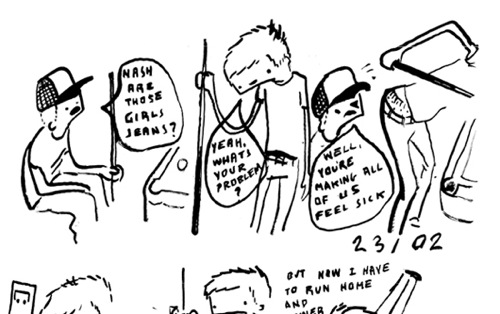 NASH
ARE
THOSE
GIRLS
JEANS?
YEAH,
WHATS
YOUR
PROBLEM
?
WELL,
YOU'RE
MAKING ALL
OF US
FEEL SICK
23/02
BUT NOW I HAVE
TO RUN HOME
AND